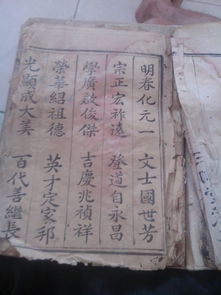 明春化元一 文士國世芳
宗正宏祚遠 登道自永昌
學廣啟俊傑 吉慶兆禎祥
榮華紹祖德 英才定家邦
光顯成大美 百代善繼長